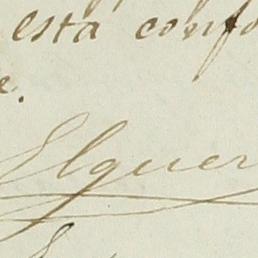 está confo
e.
Elguer